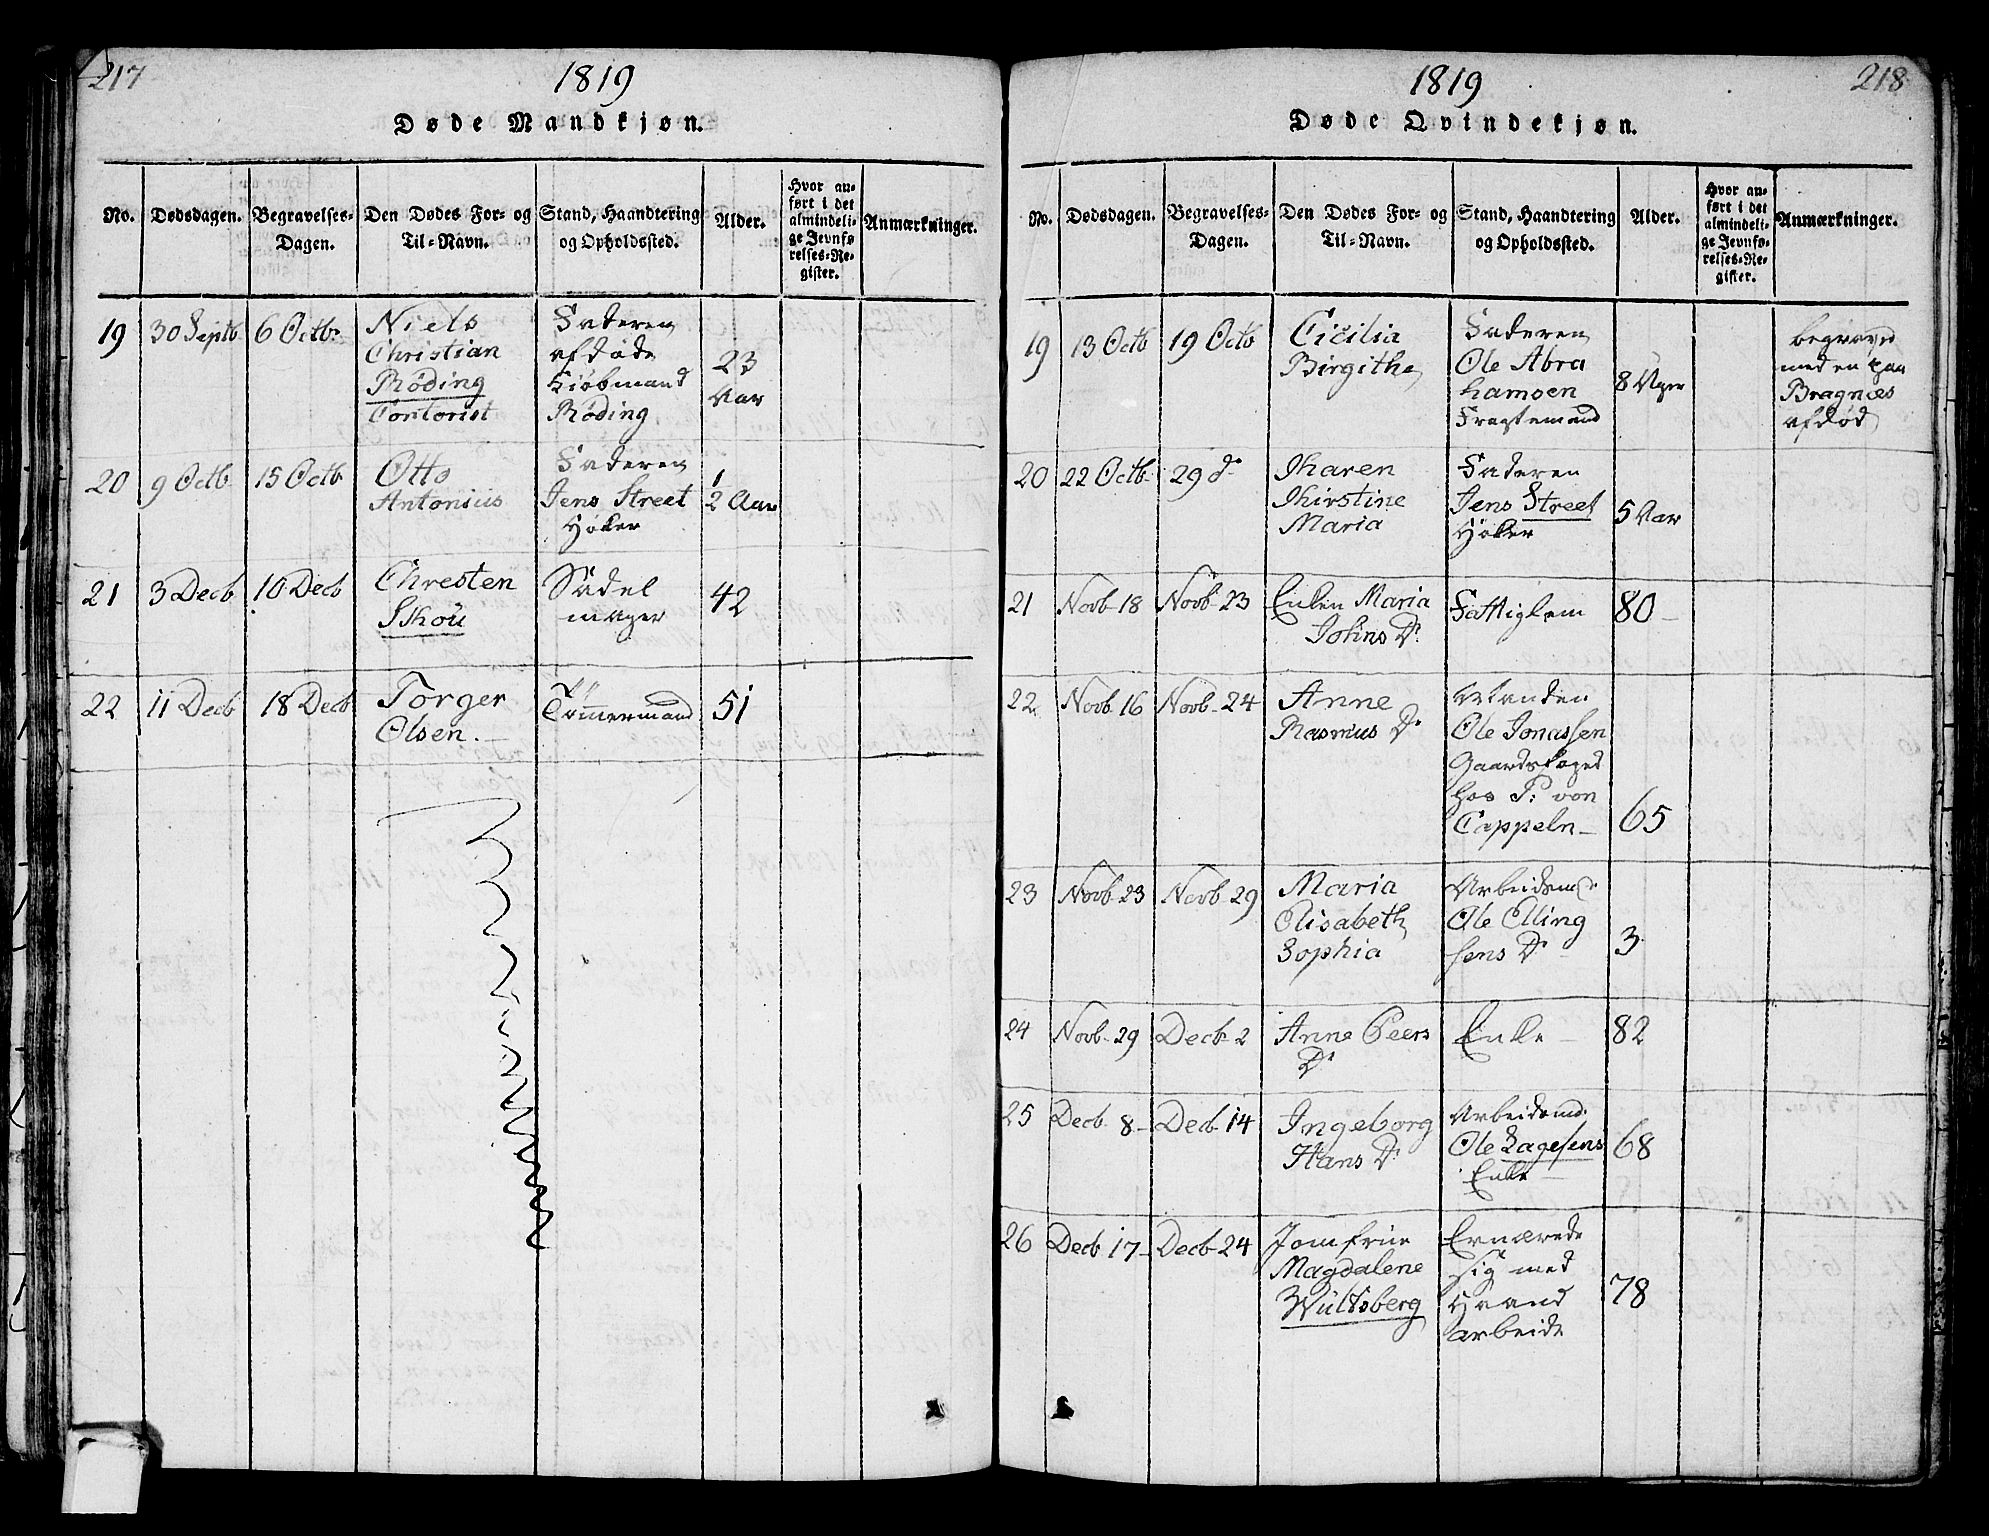 217
1819
Døde Mandkjøn.
No.
Dødsdagen.
Begravelses-
Dagen.
Den Dødes For- og
Til-Navn.
Stand, Haandtering
og Opholdssted.
Alder.
Hvor an-
ført i det
almindeli-
ge Jevnfø-
relses-Re-
gister.
Anmærkninger.
19
30 Septb.
6 Octbr
Niels
Christian
Röding
Contorist
Faderen
afdøde
Kiöbmand
Röding
23
Aar
20
9 Octb.
15 Octb
Otto
Antonius
Faderen
Jens Street
Høker
1/2 Aar
21
3 Decb
10 Decb
Chresten
Skou
Sadel
mager
42
22
11 Decb
18 Decb
Torger
Olsen.
Tømmermand
51
1819
218
Døde Qvindekjøn.
No.
Dødsdagen.
Begravelses-
Dagen.
Den Dødes For- og
Til-Navn.
Stand, Haandtering
og Opholdssted.
Alder.
Hvor an-
ført i det
almindeli-
ge Jevnfø-
relses-Re-
gister.
Anmærkninger.
19
13 Octb
19 Octb
Cicilia
Birgithe
Faderen
Ole Abra
hamsen
Fragtemand
8 Uger
begravet
med en paa
Bragnæs
afdød
20
22 Octb.
29 d
Kharen
Khirstine
Maria
Faderen
Jens Street
Høker
5 Aar
21
Novb. 18
Novb. 23
Enken Maria
Johns D.
Fattiglem
80
22
Novb 16
Novb. 24
Anne
Rasmus D
Manden
Ole Jonassen
Gaardskaged
hos P: von
Cappeln
65
23
Novb. 23
Novb. 29
Maria
Elisabeth
Sophia
Arbeidsmd.
Ole Elling
sens D
3
24
Novb. 29
Decb. 2
Anne Peers
D
Enke
82
25
Decb. 8
Decb 14
Ingeborg
Hans D
Arbeidsmd.
Ole Lagesens
Enke
68
26
Decb 17
Decb. 24
Jomfrue
Magdalene
Wultsberg
Ernærede
sig med
Haand
arbeide
78